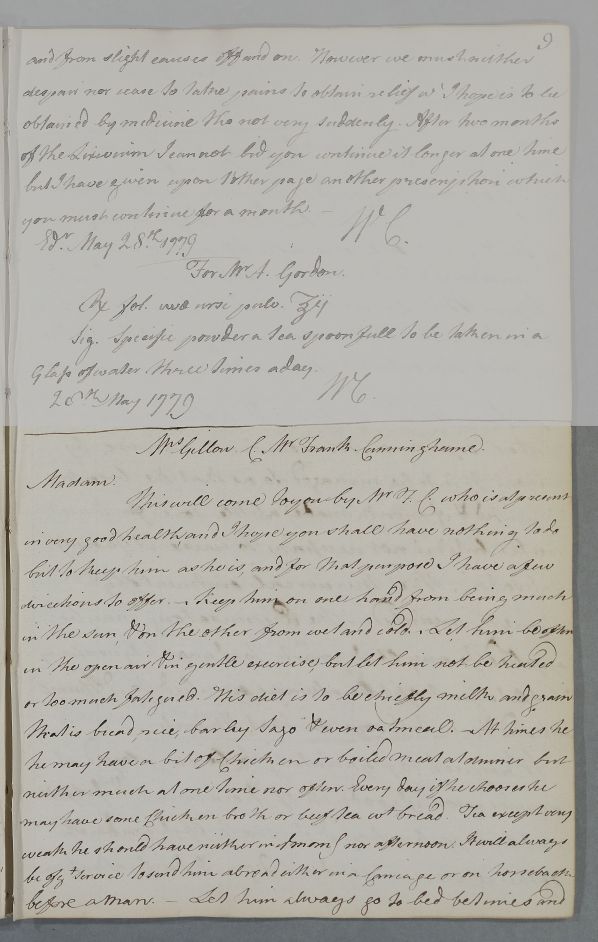 9
and from slight causes off and on. However we must neither
despair nor cease to take pains to obtain relief wh I hope is to be
obtained by medicine tho not very suddenly. After two months
of the Lixivium I cannot bid you continue it longer at one time
but I have given upon tother page another prescription which
you must continue for a month. – W C.
Edr May 28.th 1779
For Mr A. Gordon.
Rx fol. uvæ ursi pulv. ℥ij
Sig. Specific powder a tea spoonfull to be taken in a
Glass of water three times a day.
28th May 1779 WC.
Mrs Gillow C. Mr Frank Cunninghame.
Madam.
This will come to you by Mr F. C. who is at present
in very good health and I hope you shall have nothing to do
but to keep him as he is, and for that purpose I have a few
directions to offer. – Keep him on one hand from being much
in the sun, & on the other from wet and cold. Let him be often
in the open air & in gentle exercise, but let him not be heated
or too much fatigued. His diet is to be chiefly milk and grain
that is bread, rice, barley Sago & even oatmeal. – At times he
he may have a bit of Chicken or boiled meat at dinner but
neither much at one time nor often. Every day if he chooses he
may have some Chicken broth or beef tea wt bread. Tea except very
weak he should have neither in morng nor afternoon. It will always
be of gt service to send him abroad either in a Carriage or on horseback
before a man. – Let him always go to bed betimes and